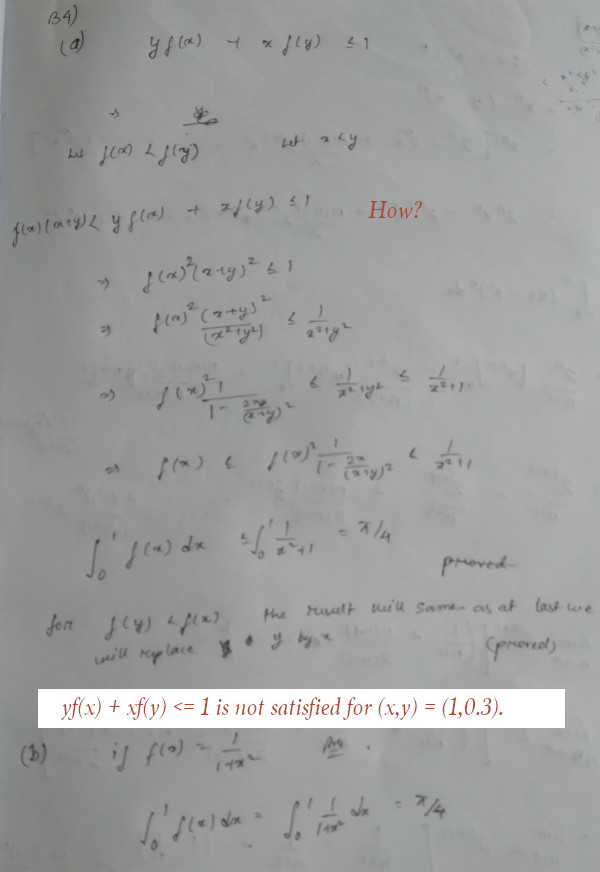 B4)
(a) y f(x) + x f(y) ≤ 1
⇒
Let f(x) < f(y) Let x < y
f(x)(x+y) < y f(x) + x f(y) ≤ 1 How?
⇒ f(x)²(x+y)² ≤ 1
⇒ f(x)² (x+y)²/(x²+y²) ≤ 1/(x²+y²)
⇒ f(x)² 1/(1 - 2xy/(x+y)²) ≤ 1/(x²+y²) ≤ 1/(x²+1)
⇒ f(x) ≤ f(x)² 1/(1 - 2x/(x+y)²) ≤ 1/(x²+1)
∫₀¹ f(x) dx ≤ ∫₀¹ 1/(x²+1) = π/4
proved
for f(y) < f(x) the result will same as at last we
will replace y by x (proved)
yf(x) + xf(y) <= 1 is not satisfied for (x,y) = (1,0.3).
(b) if f(x) = 1/(1+x²) Ans.
∫₀¹ f(x) dx = ∫₀¹ 1/(1+x²) dx = π/4